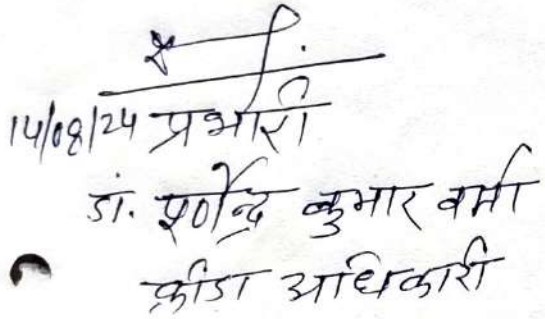 14/08/24 प्रभारी
डॉ. पूर्णेन्द्र कुमार वर्मा
क्रीडा अधिकारी